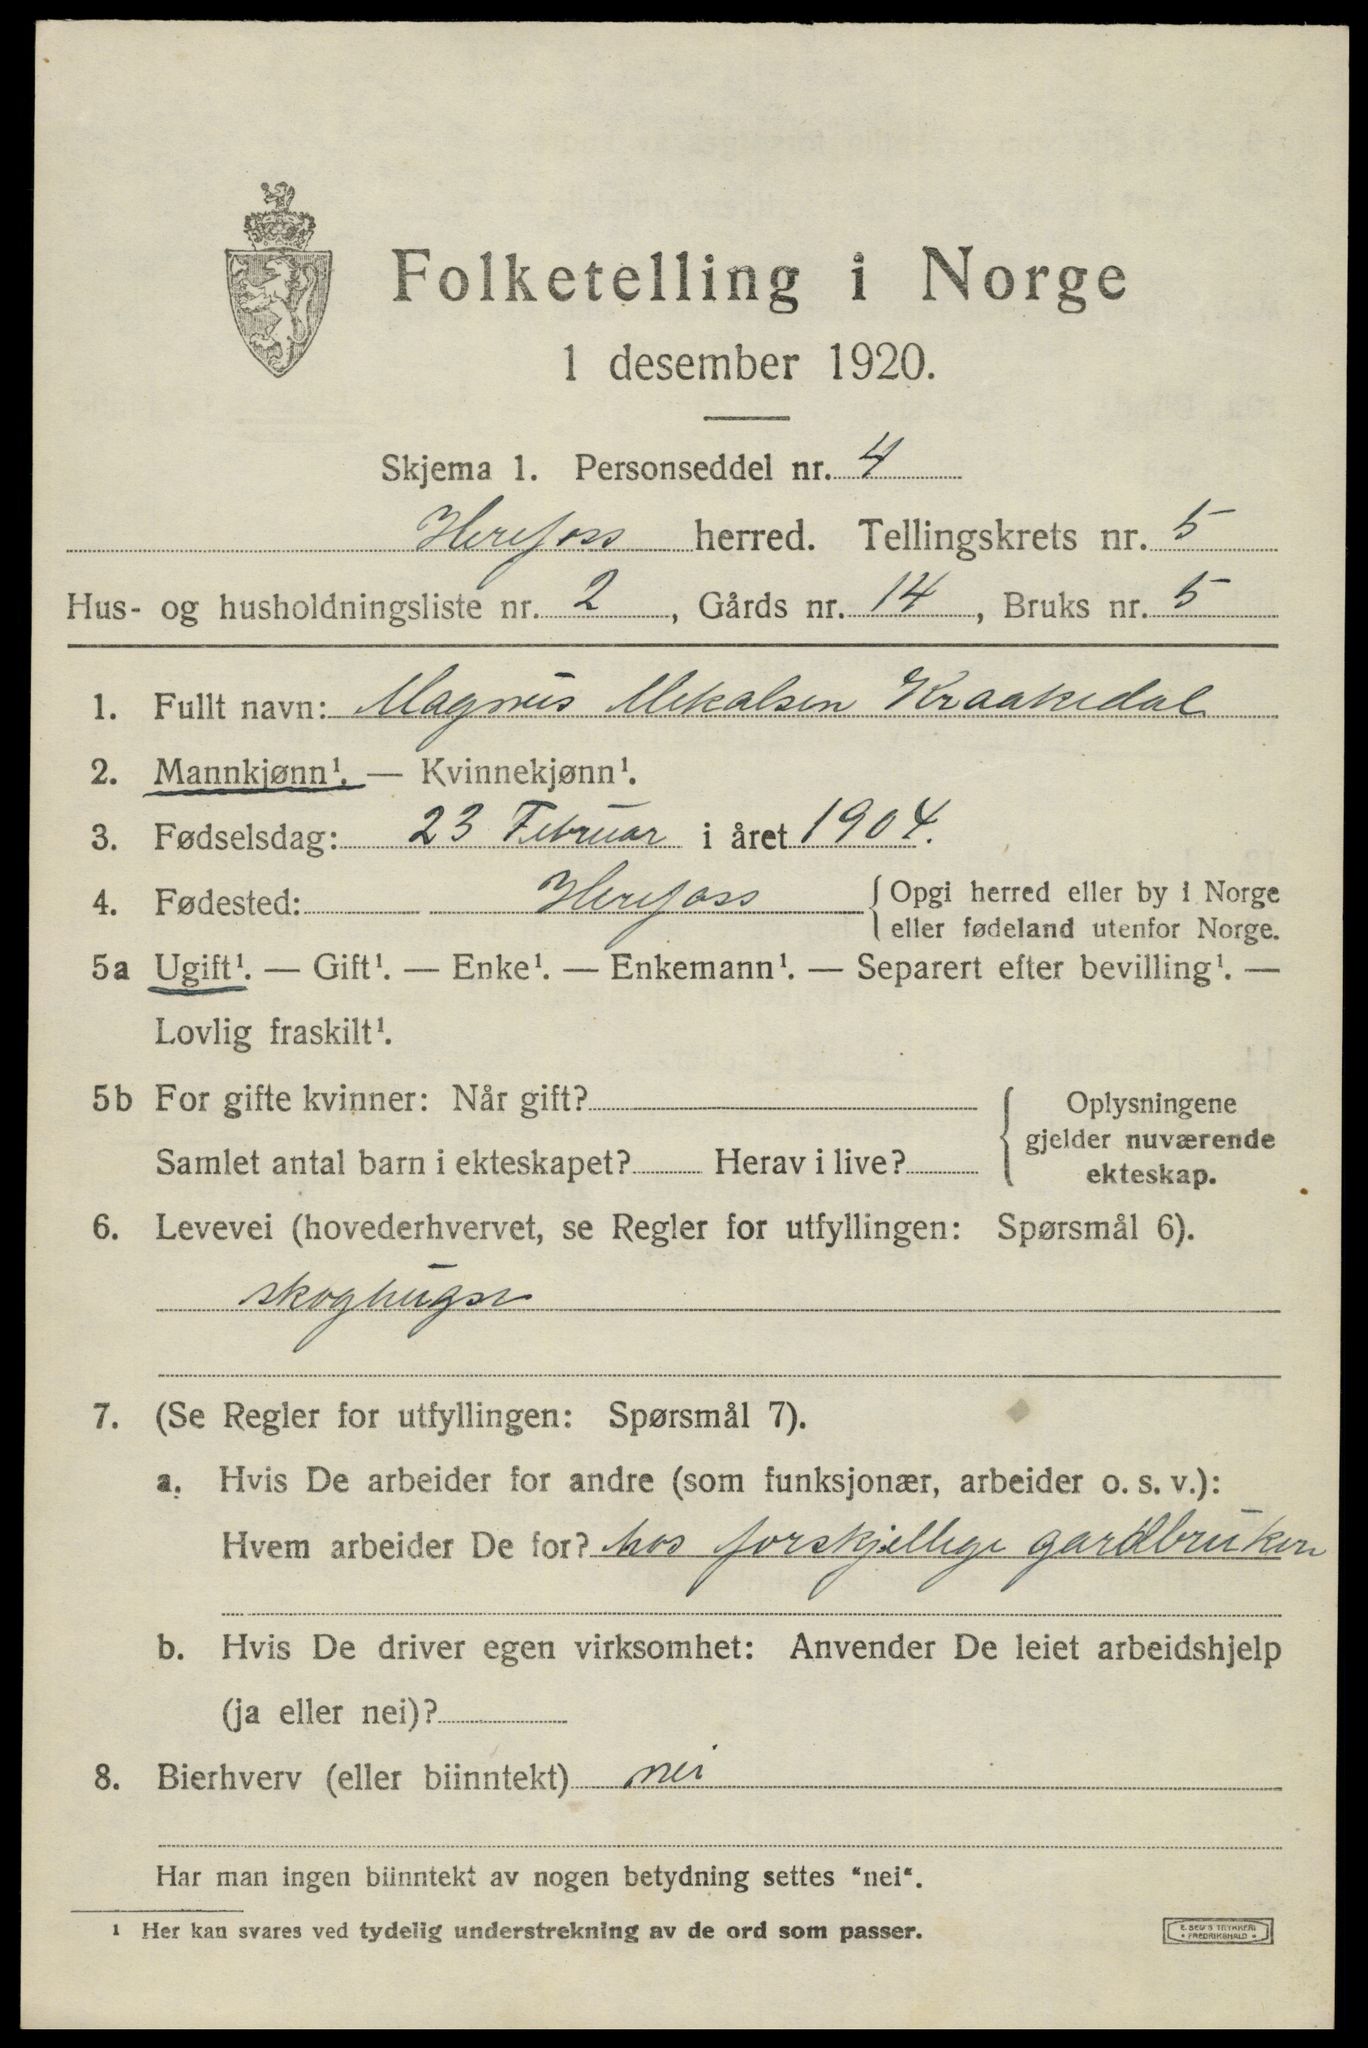 Folketelling i Norge
1 desember 1920.
Skjema 1. Personseddel nr. 4
Herefoss herred. Tellingskrets nr. 5
Hus- og husholdningsliste nr. 2, Gårds nr. 14, Bruks nr. 5
1. Fullt navn: Magnus Mikalsen Kraakedal
2. Mannkjønn¹. — Kvinnekjønn¹.
3. Fødselsdag: 23 Februar i året 1904.
4. Fødested: Herefoss { Opgi herred eller by i Norge
eller fødeland utenfor Norge.
5a Ugift¹. — Gift¹. — Enke¹. — Enkemann¹. — Separert efter bevilling¹. —
Lovlig fraskilt¹.
5b For gifte kvinner: Når gift?
Samlet antal barn i ekteskapet? Herav i live?
{ Oplysningene
gjelder nuværende
ekteskap.
6. Levevei (hovederhvervet, se Regler for utfyllingen: Spørsmål 6).
skoghuger
7. (Se Regler for utfyllingen: Spørsmål 7).
a. Hvis De arbeider for andre (som funksjonær, arbeider o. s. v.):
Hvem arbeider De for? hos forskjellige gardbruker
b. Hvis De driver egen virksomhet: Anvender De leiet arbeidshjelp
(ja eller nei)?
8. Bierhverv (eller biinntekt) nei
Har man ingen biinntekt av nogen betydning settes "nei".
¹ Her kan svares ved tydelig understrekning av de ord som passer.
E. SEM'S TRYKKERI
• FREDRIKSHALD •